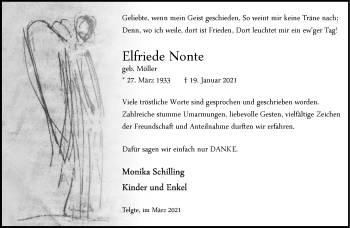 Geliebte, wenn mein Geist geschieden, So weint mir keine Träne nach;
Denn, wo ich weile, dort ist Frieden, Dort leuchtet mir ein ew'ger Tag!
Elfriede Nonte
geb. Möller
* 27. März 1933 † 19. Januar 2021
Viele tröstliche Worte sind gesprochen und geschrieben worden.
Zahlreiche stumme Umarmungen, liebevolle Gesten, vielfältige Zeichen
der Freundschaft und Anteilnahme durften wir erfahren.
Dafür sagen wir einfach nur DANKE.
Monika Schilling
Kinder und Enkel
Telgte, im März 2021